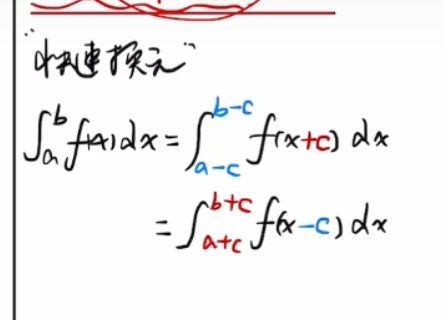 “快速换元”
∫_a^b f(x)dx = ∫_{a-c}^{b-c} f(x+c) dx
= ∫_{a+c}^{b+c} f(x-c) dx